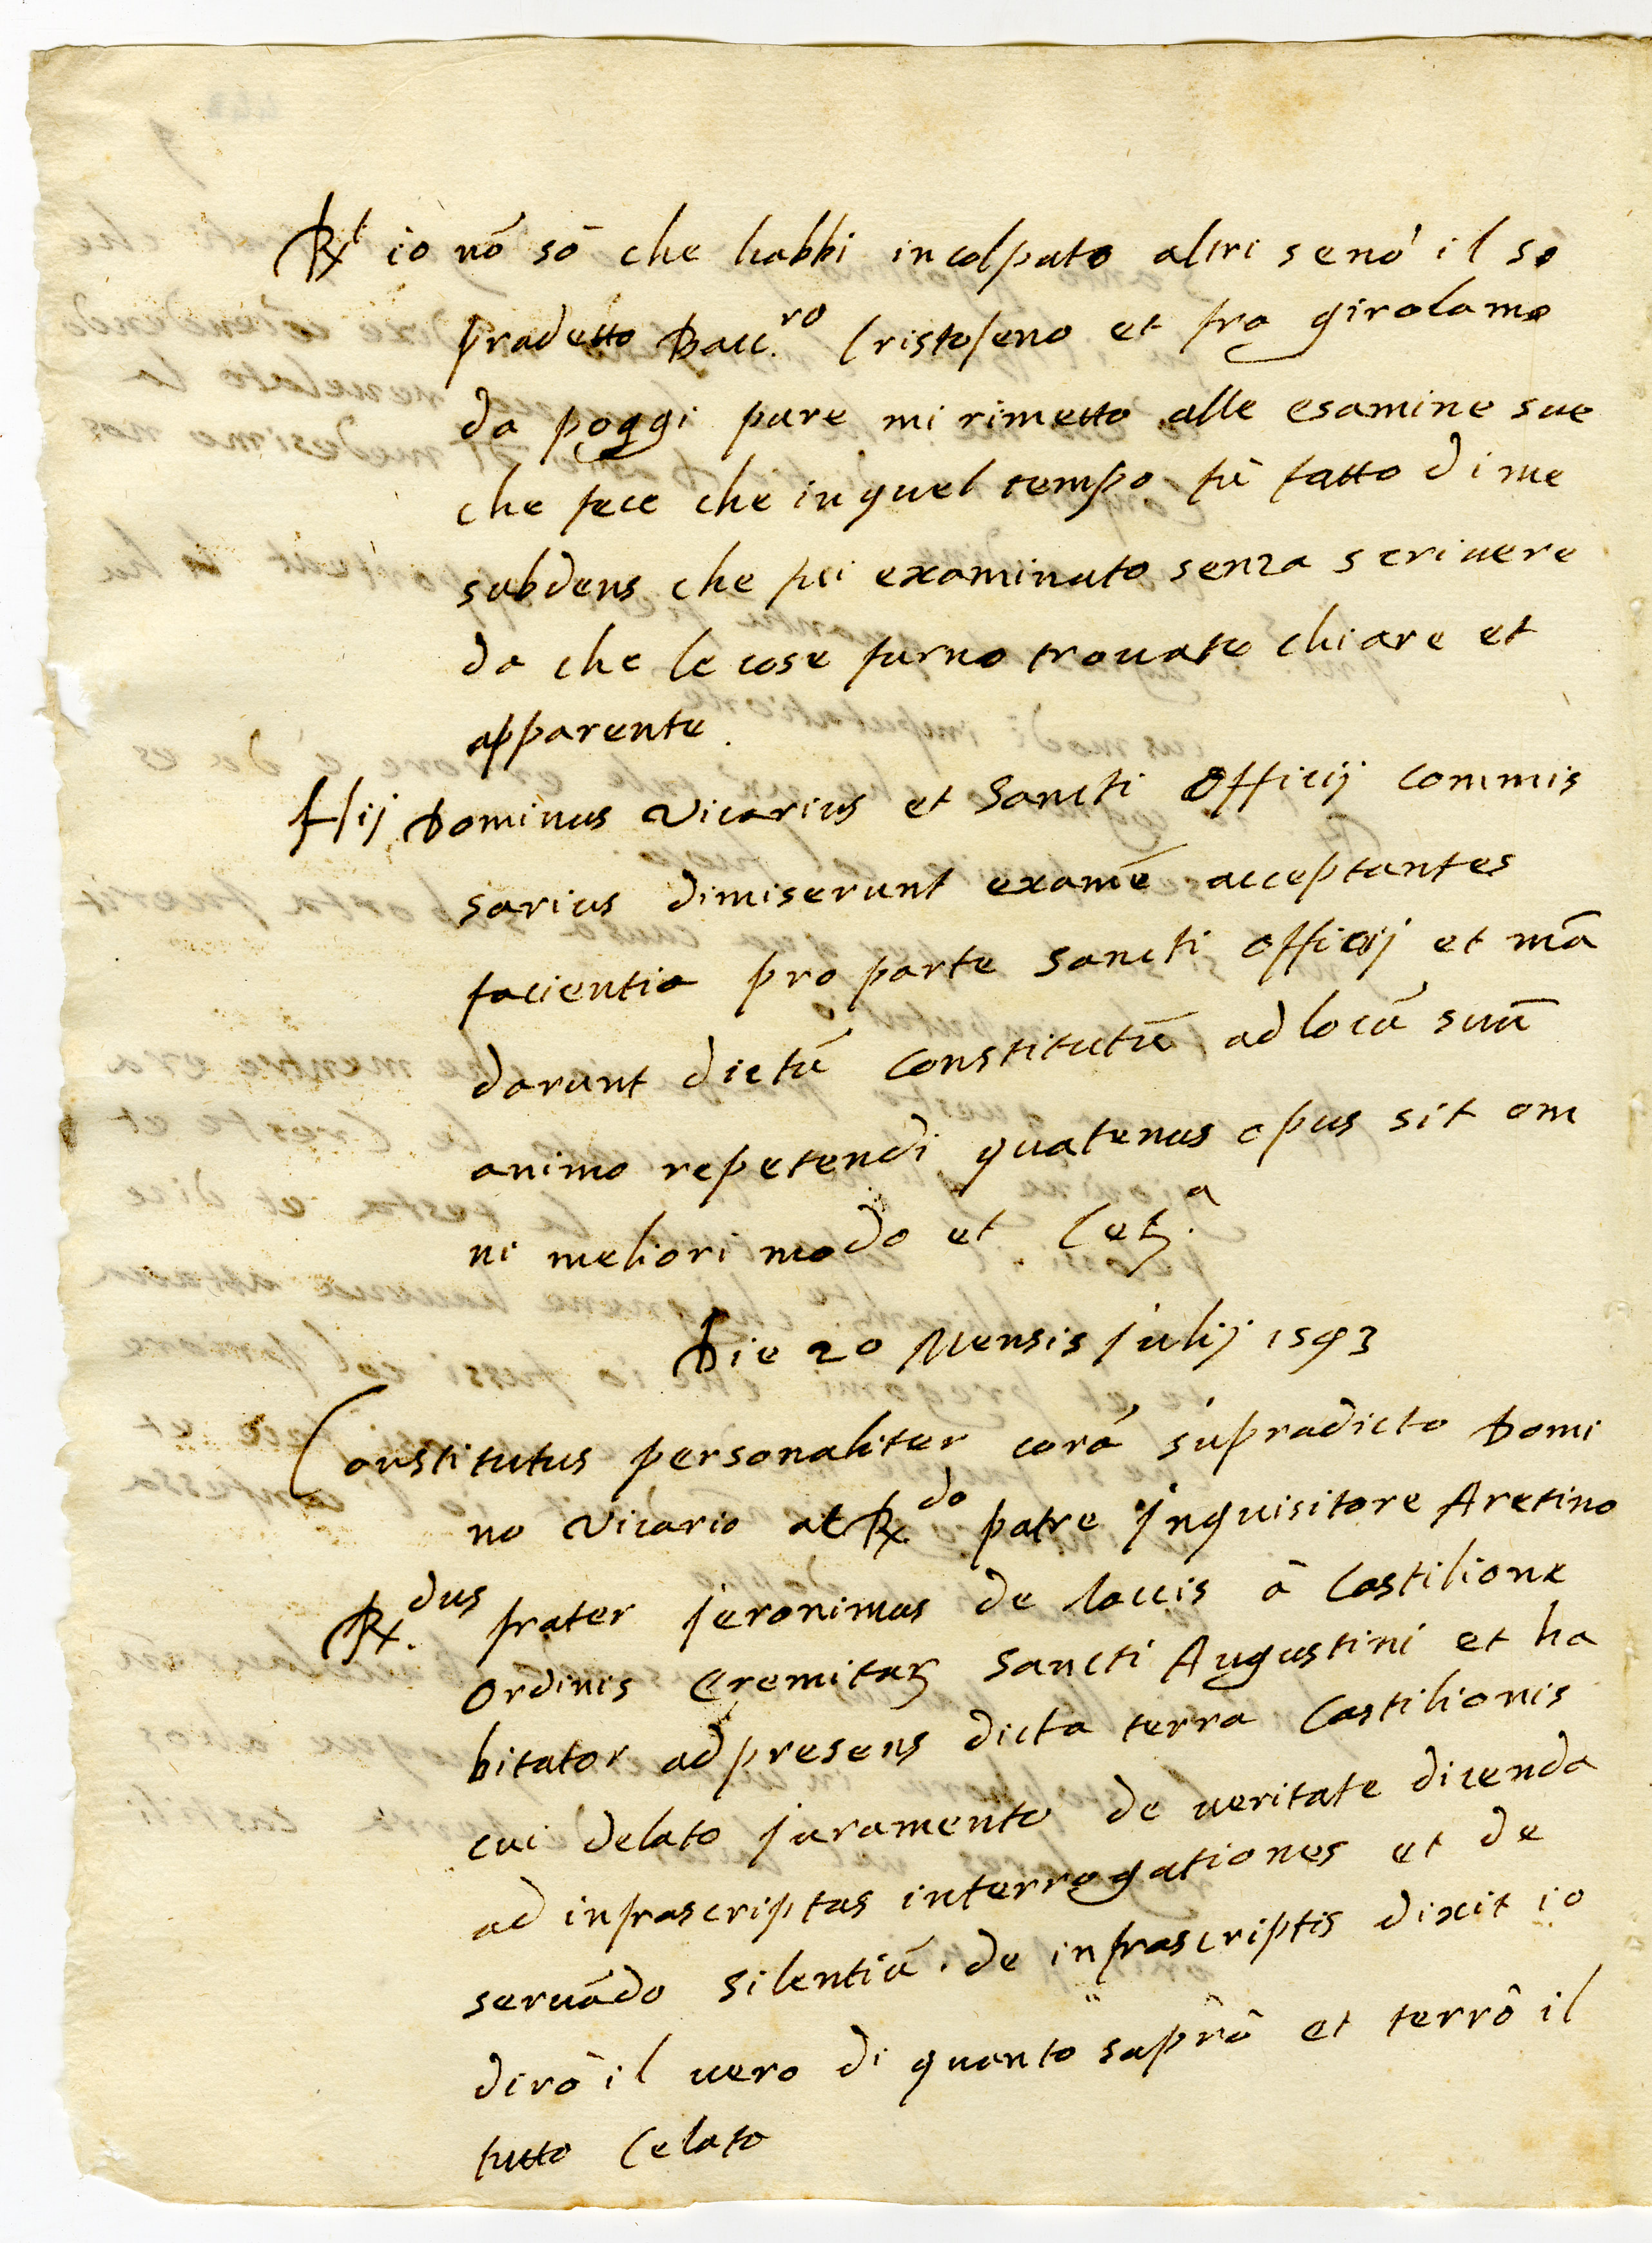 Rt io nõ sò che habbi incolpato altri senò il so
pradetto Bacc.ro Cristofeno et fra girolamo
da poggi pure mi rimetto alle esamine sue
che fece che in quel tempo fù fatto di me
subdens che fui examinato senza scrivere
da che le cose furno trovate chiare et
apparente.
Hij Dominus Vicarius et Sancti Officij Commis
sarius dimiserunt examē acceptantes
facientia pro parte Sancti Officij et mā
darunt dictū Constitutū ad locū suū
animo repetendi quatenus opus sit om
ni meliori modo et Cet.a
Die 20 Mensis Julij 1593
Constitutus personaliter corā supradicto Domi
no Vicario at R.do patre Inquisitore Aretino
R.dus frater Jeronimus de laccis à Castilione
Ordinis Eremitaꝝ Sancti Augustini et ha
bitator ad presens dicta terra Castilionis
cui delato juramento de veritate dicenda
ad infrascriptas interrogationes et de
servādo silentiū. de infrascriptis dixit io
dirò il vero di quanto saprò et terrò il
tutto Celato